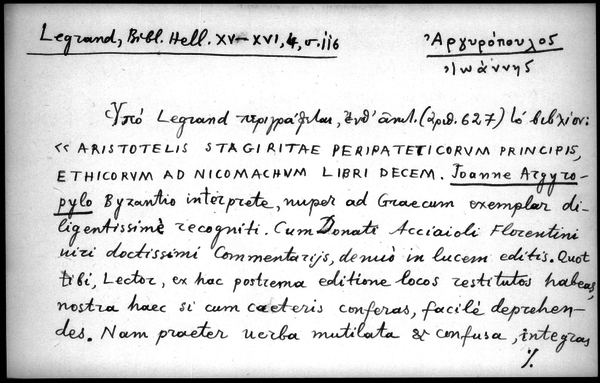 Legrand, Bibl. Hell. XV–XVI, 4, σ. 116
Ἀργυρόπουλος
Ἰωάννης
Ὑπό Legrand περιγράφεται, ἔνθ' ἀνωτ. (ἀριθ. 627) τό βιβλίον:
« ARISTOTELIS STAGIRITAE PERIPATETICORVM PRINCIPIS,
ETHICORVM AD NICOMACHVM LIBRI DECEM. Joanne Argyro-
pylo Byzantio interprete, nuper ad Graecum exemplar di-
ligentissimè recogniti. Cum Donati Acciaioli Florentini
uiri doctissimi Commentarijs, denuò in lucem editis. Quot
tibi, Lector, ex hac postrema editione locos restitutos habeas,
nostra haec si cum caeteris conferas, facilè deprehen-
des. Nam praeter uerba mutilata & confusa, integras
./.